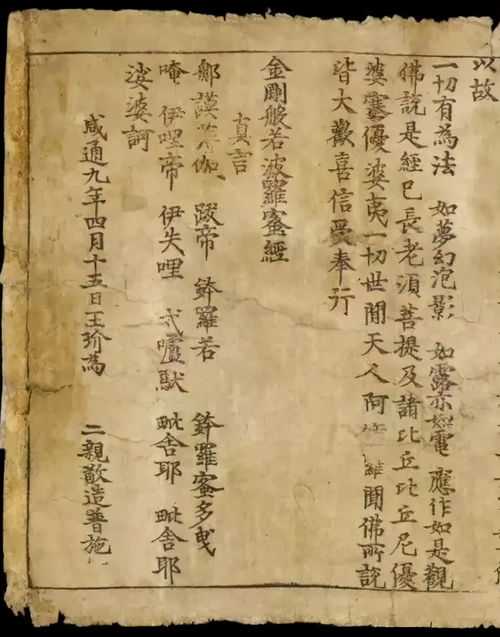 以故
一切有為法 如夢幻泡影 如露亦如電 應作如是觀
佛說是經已長老須菩提及諸比丘比丘尼優
婆塞優婆夷一切世間天人阿羅聞佛所說
皆大歡喜信受奉行
金剛般若波羅蜜經
真言
那謨伽 跋帝 鉢羅若 鉢羅蜜多曳
唵 伊哩帝 伊失哩 戍嚧馱 毗舍耶 毗舍耶
娑婆訶
咸通九年四月十五日王玠為 二親敬造普施